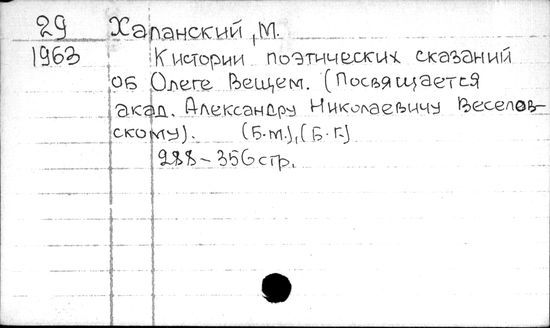 29 Халанский, М.
1963 К истории поэтических сказаний
об Олеге Вещем. (Посвящается
акад. Александру Николаевичу Веселов-
скому). [Б.м.], [Б.г.]
288-356 стр.